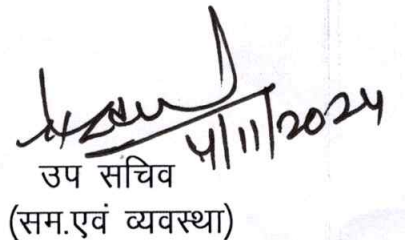 4/11/2024
उप सचिव
(सम.एवं व्यवस्था)